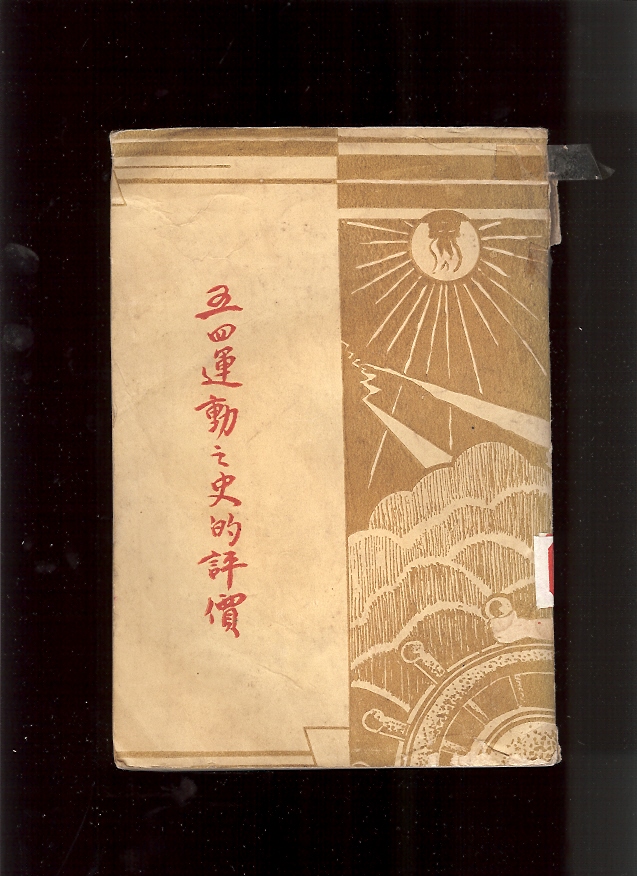 五四運動之史的評價